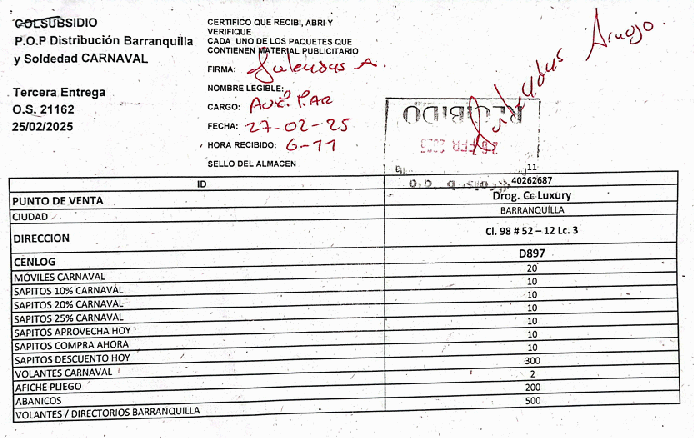 COLSUBSIDIO
P.O.P Distribución Barranquilla
y Soldedad CARNAVAL
Tercera Entrega
O.S. 21162
25/02/2025
CERTIFICO QUE RECIBI, ABRI Y
VERIFIQUE
CADA UNO DE LOS PAQUETES QUE
CONTIENEN MATERIAL PUBLICITARIO
FIRMA:
NOMBRE LEGIBLE:
CARGO: Aux. Par
FECHA: 27-02-25
HORA RECIBIDO: 6-11
SELLO DEL ALMACEN
Araujo
RECIBIDO
ID 40262687
PUNTO DE VENTA Drog. Ce Luxury
CIUDAD BARRANQUILLA
DIRECCION Cl. 98 # 52 – 12 Lc. 3
CENLOG D897
MOVILES CARNAVAL 20
SAPITOS 10% CARNAVAL 10
SAPITOS 20% CARNAVAL 10
SAPITOS 25% CARNAVAL 10
SAPITOS APROVECHA HOY 10
SAPITOS COMPRA AHORA 10
SAPITOS DESCUENTO HOY 10
VOLANTES CARNAVAL 300
AFICHE PLIEGO 2
ABANICOS 200
VOLANTES / DIRECTORIOS BARRANQUILLA 500